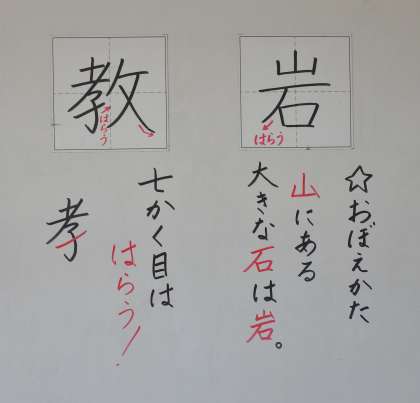 岩
はらう
☆おぼえかた
山にある
大きな石は岩。
教
はらう
七かく目は
はらう!
孝